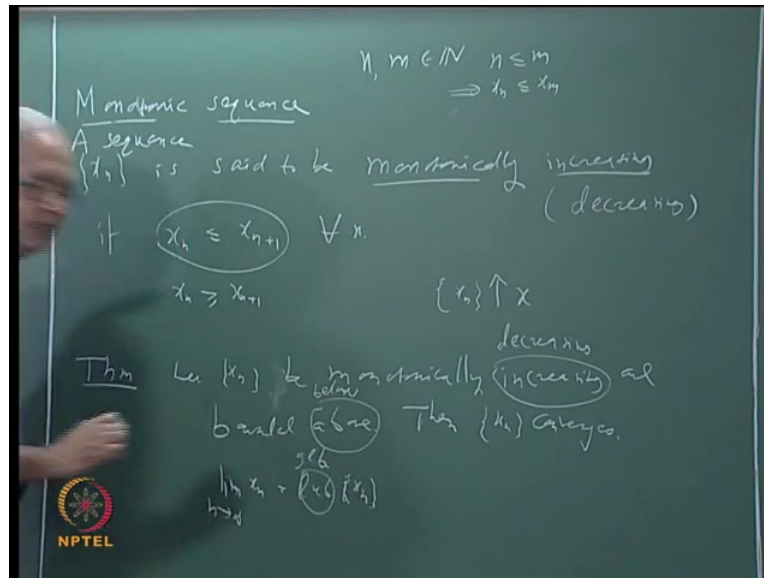 n, m ∈ ℕ n ≤ m
⟹ xₙ ≤ xₘ
Monotonic sequence
A sequence
{xₙ} is said to be monotonically increasing
(decreasing)
if xₙ ≤ xₙ₊₁ ∀ n.
xₙ ≥ xₙ₊₁ {xₙ} ↑ x
decreasing
Thm Let {xₙ} be monotonically increasing and
below
bounded above Then {xₙ} converges.
glb
lim xₙ = lub {xₙ}
n→∞
NPTEL